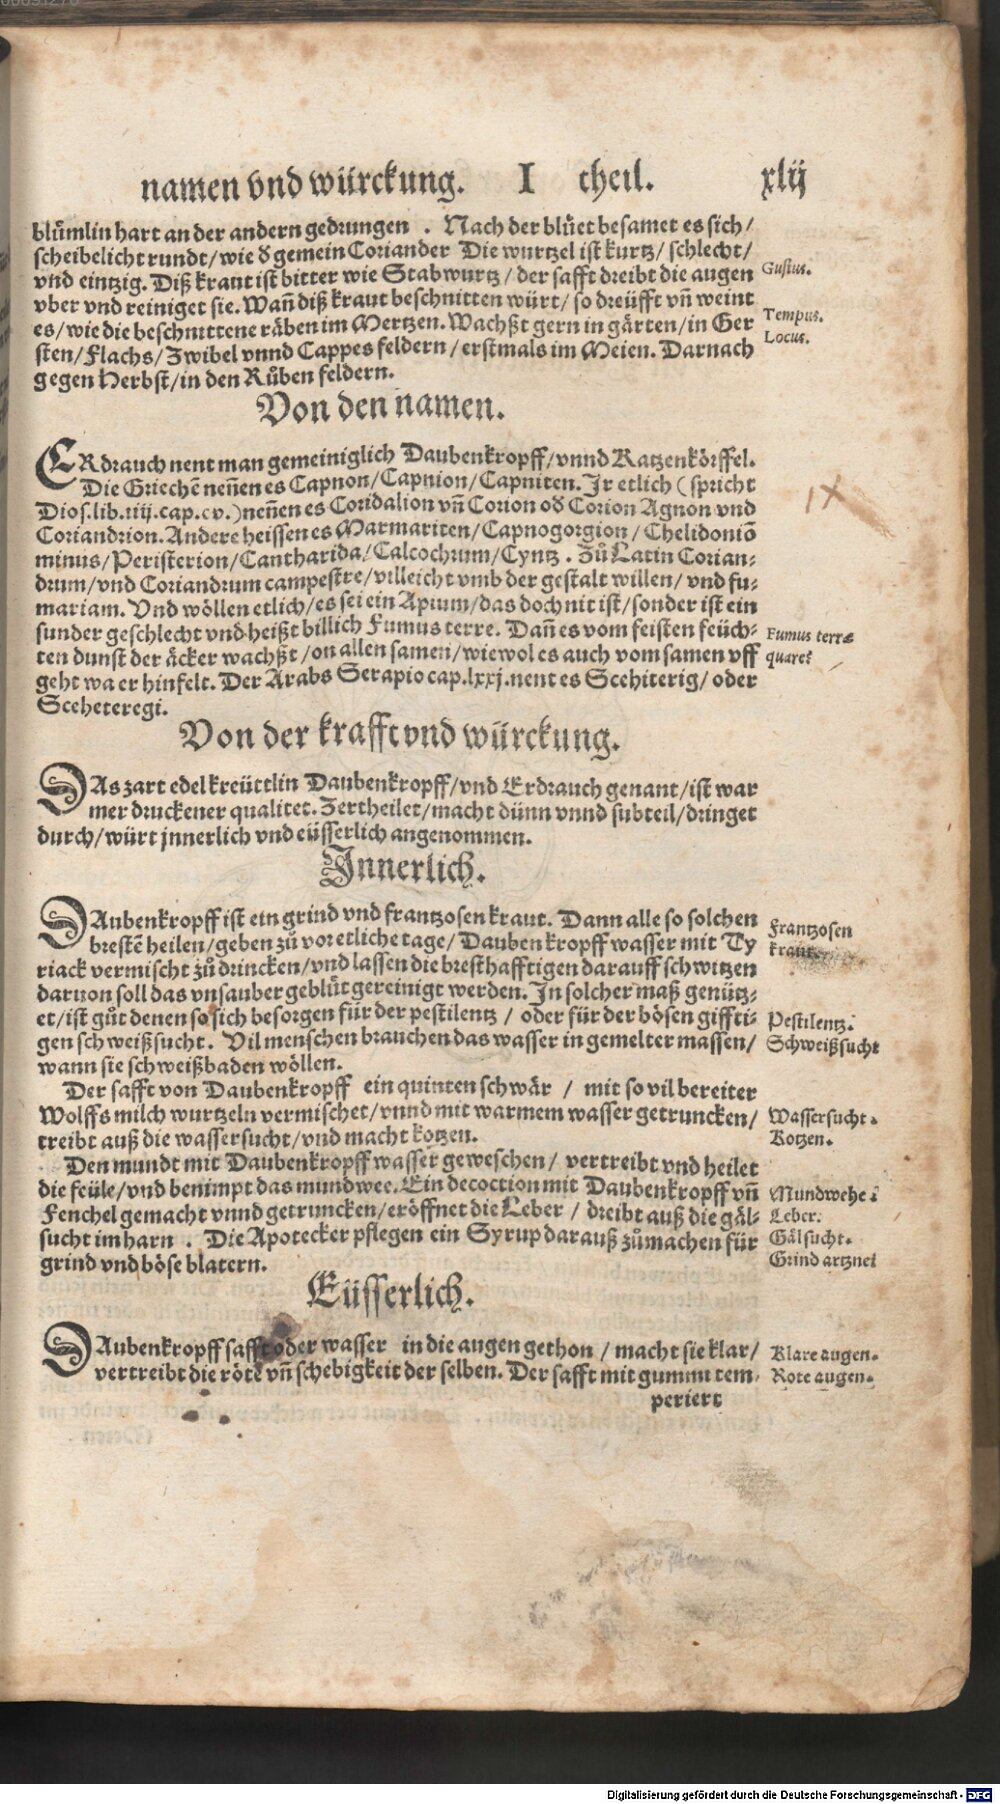 namen vnd würckung. I theil. xlij
blümlin hart an der andern gedrungen . Nach der blüet besamet es sich/
scheibelicht rundt/wie d̕ gemein Coriander Die wurtzel ist kurtz/ schlecht/
vnd eintzig. Diß kraut ist bitter wie Stabwurtz/der safft dreibt die augen
Gustus.
vber vnd reiniget sie. Wañ diß kraut beschnitten würt/so dreüfft vñ weint
es/wie die beschnittene räben im Mertzen. Wachßt gern in gärten/in Ger
Tempus.
Locus.
sten/Flachs/Zwibel vnnd Cappes feldern/erstmals im Meien. Darnach
gegen Herbst/in den Růben feldern.
Von den namen.
ERdrauch nent man gemeiniglich Daubenkropff/vnnd Katzenkörffel.
Die Griechē neñen es Capnon/Capnion/Capniten. Jr etlich (spricht
Dios.lib.iiij.cap.cv.)neñen es Coridalion vñ Corion od̕ Corion Agnon vnd
Coriandrion. Andere heissen es Marmariten/Capnogorgion/Chelidoniō
minus/Peristerion/Cantharida/Calcochrum/Cyntz. Zů Latin Corian-
drum/vnd Coriandrum campestre/villeicht vmb der gestalt willen/vnd fu-
mariam. Vnd wöllen etlich/es sei ein Apium/das doch nit ist/sonder ist ein
sunder geschlecht vnd heißt billich Fumus terre. Dañ es vom feisten feüch-
Fumus terræ
ten dunst der äcker wachßt/on allen samen/wiewol es auch vom samen vff
quare?
geht wa er hinfelt. Der Arabs Serapio cap.lxxj.nent es Scehiterig/oder
Sceheteregi.
Von der krafft vnd würckung.
DAs zart edel kreüttlin Daubenkropff/vnd Erdrauch genant/ist war
mer druckener qualitet. Zertheilet/macht dünn vnnd subteil/dringet
durch/würt jnnerlich vnd eüsserlich angenommen.
Jnnerlich.
DAubenkropff ist ein grind vnd frantzosen kraut. Dann alle so solchen
Frantzosen
brestē heilen/geben zů vor etliche tage/Daubenkropff wasser mit Ty
kraut.
riack vermischt zů drincken/vnd lassen die bresthafftigen darauff schwitzen
daruon soll das vnsauber geblůt gereinigt werden. Jn solcher maß genütz-
et/ist gůt denen so sich besorgen für der pestilentz/oder für der bösen giffti-
Pestilentz.
gen schweißsucht. Vil menschen brauchen das wasser in gemelter massen/
Schweißsucht
wann sie schweißbaden wöllen.
Der safft von Daubenkropff ein quinten schwär/mit so vil bereiter
Wolffs milch wurtzeln vermischet/vnnd mit warmem wasser getruncken/
Wassersucht.
treibt auß die wassersucht/vnd macht kotzen.
Kotzen.
Den mundt mit Daubenkropff wasser geweschen/vertreibt vnd heilet
die feüle/vnd benimpt das mundwee. Ein decoction mit Daubenkropff vñ
Mundwehe.
Fenchel gemacht vnnd getruncken/eröffnet die Leber/dreibt auß die gäl-
Leber.
sucht im harn . Die Apotecker pflegen ein Syrup darauß zůmachen für
Gälsucht.
grind vnd böse blatern.
Grind artznei
Eüsserlich.
DAubenkropff safft oder wasser in die augen gethon/macht sie klar/
Klare augen.
vertreibt die röte vñ schebigkeit der selben. Der safft mit gummi tem-
Rote augen.
periert
Digitalisierung gefördert durch die Deutsche Forschungsgemeinschaft - DFG